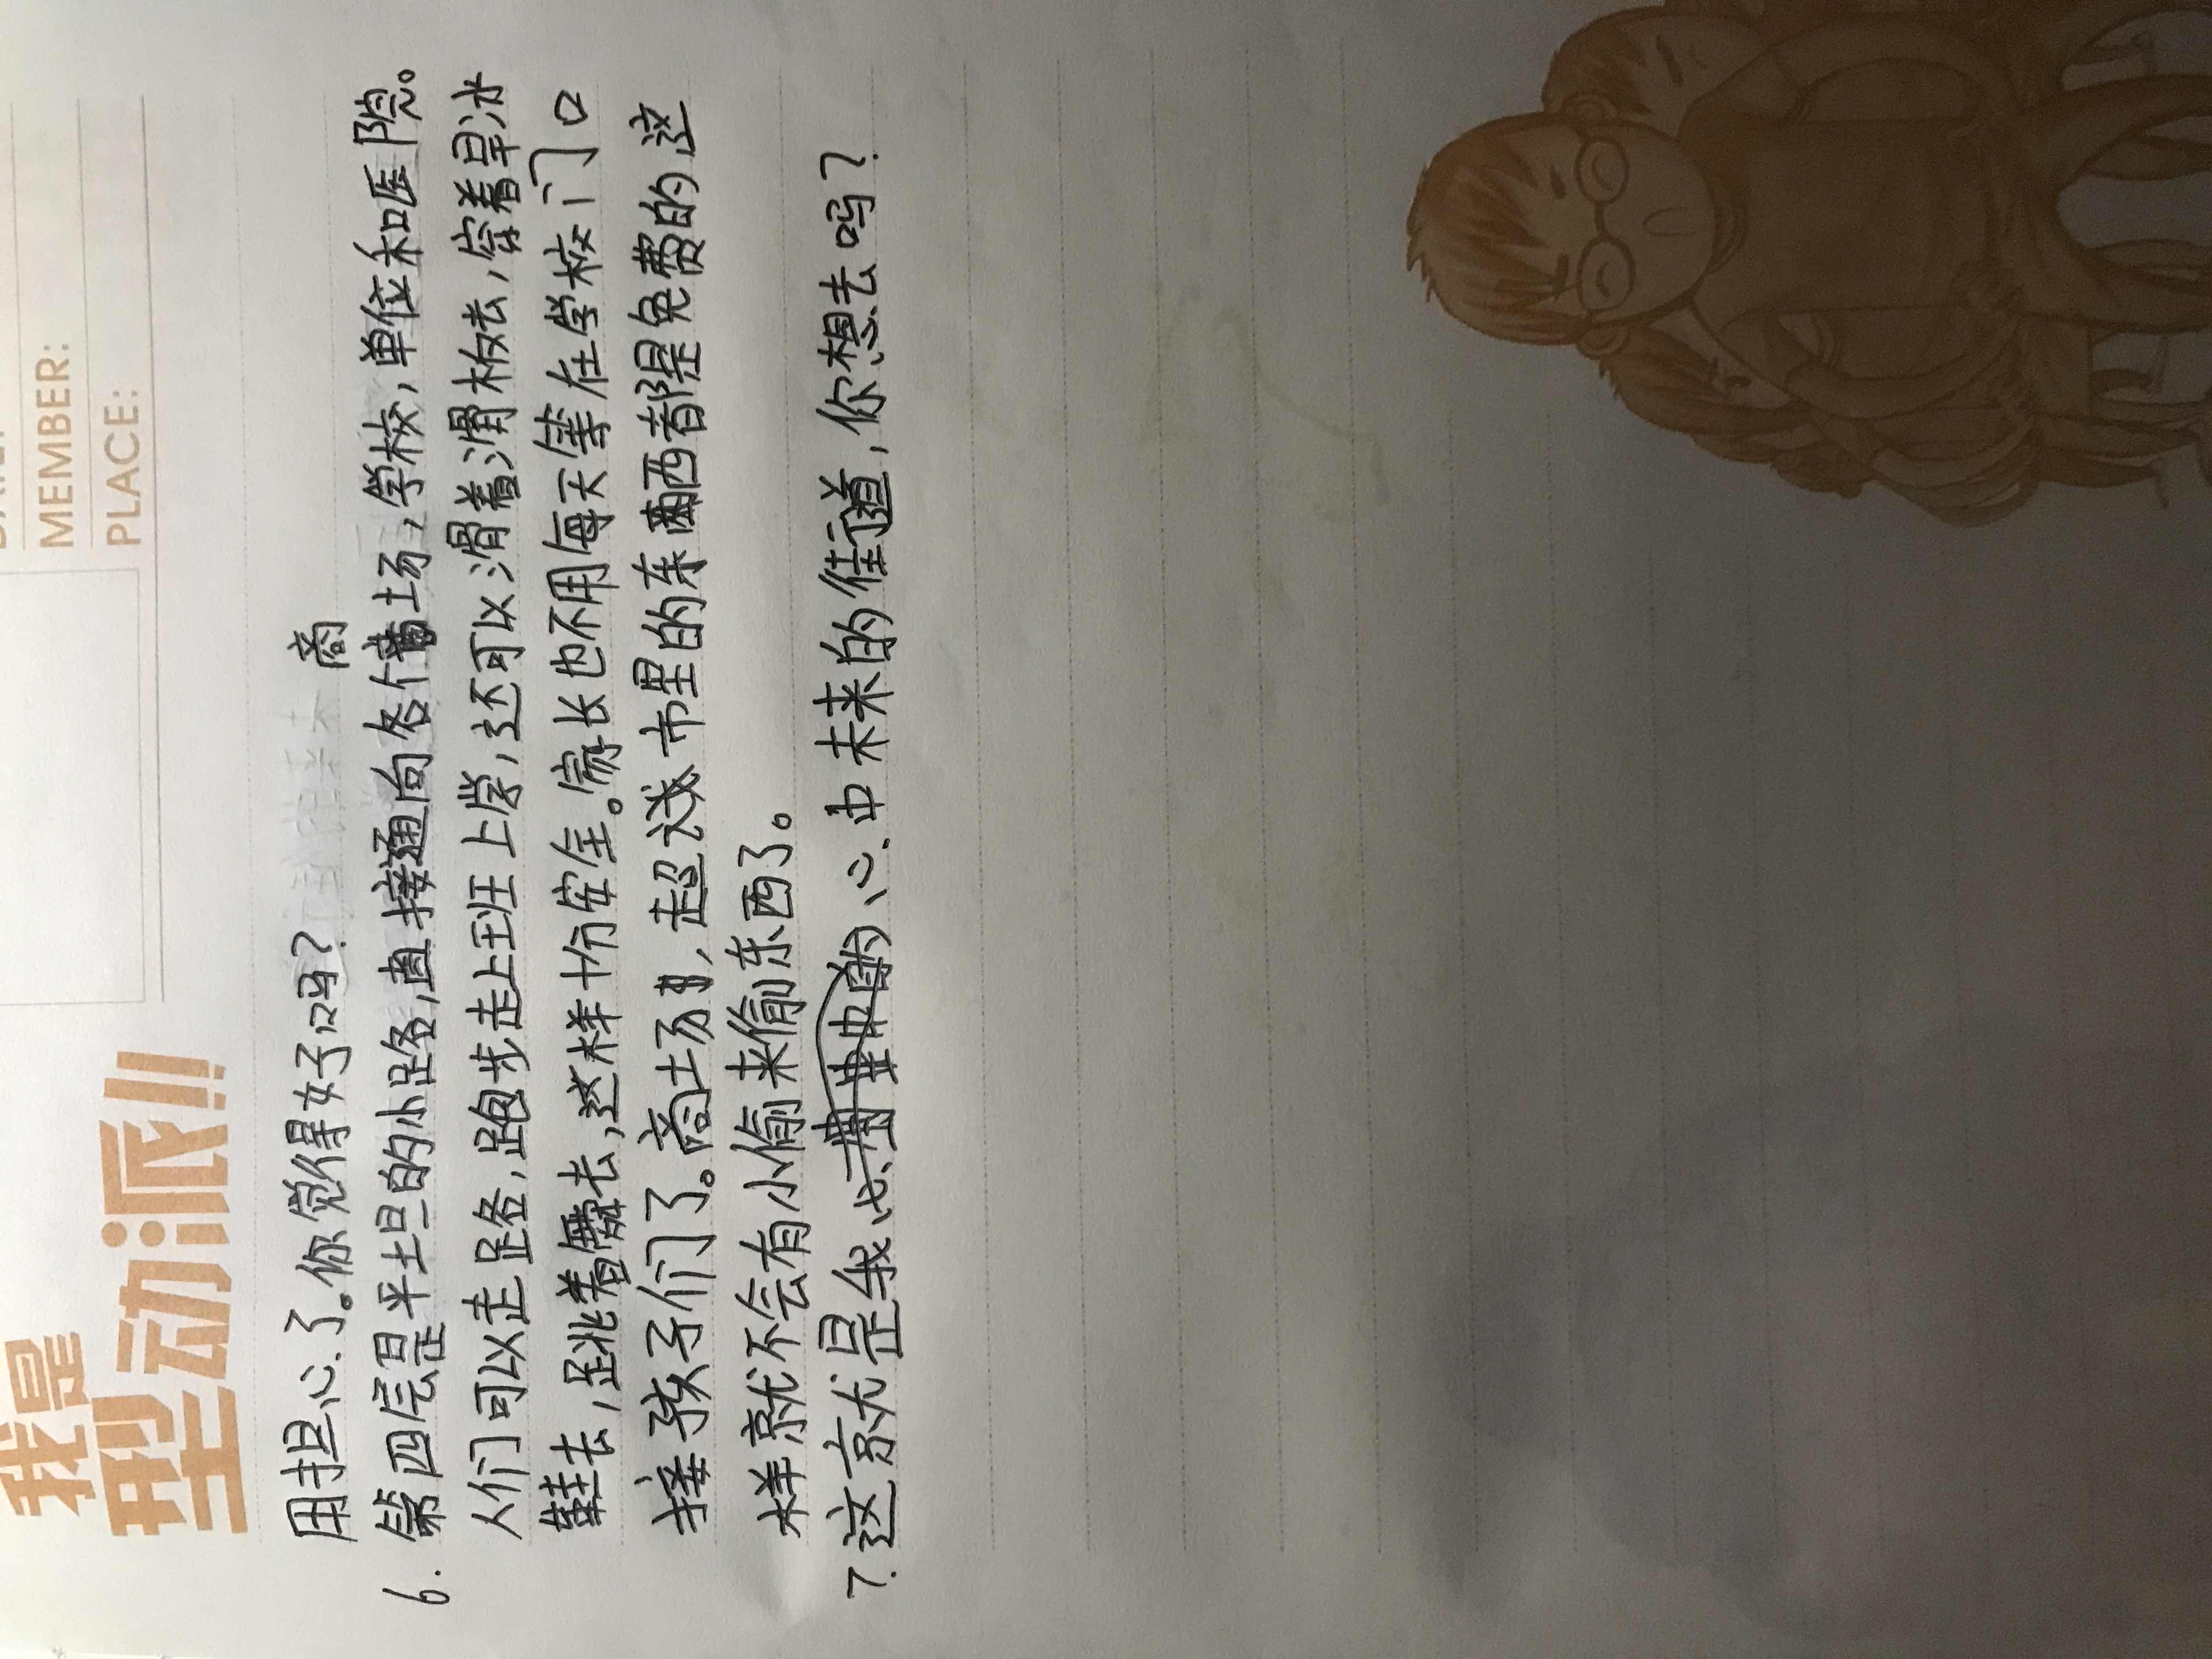 MEMBER:
PLACE:
我是
型动派!!!
用担心了。你觉得好吗?
商
6. 第四层是平坦的小路,直接通向各个场,学校,单位和医院。
人们可以走路,跑步走上班上学,还可以滑着滑板去,穿着旱冰
鞋去,跳着去,这样十份安全。家长也不用每天等在学校门口
接孩子们了。商场,超市里的东西都是免费的这
样就不会有小偷来偷东西了。
7. 这就是我心中未来的街道,你想去吗?